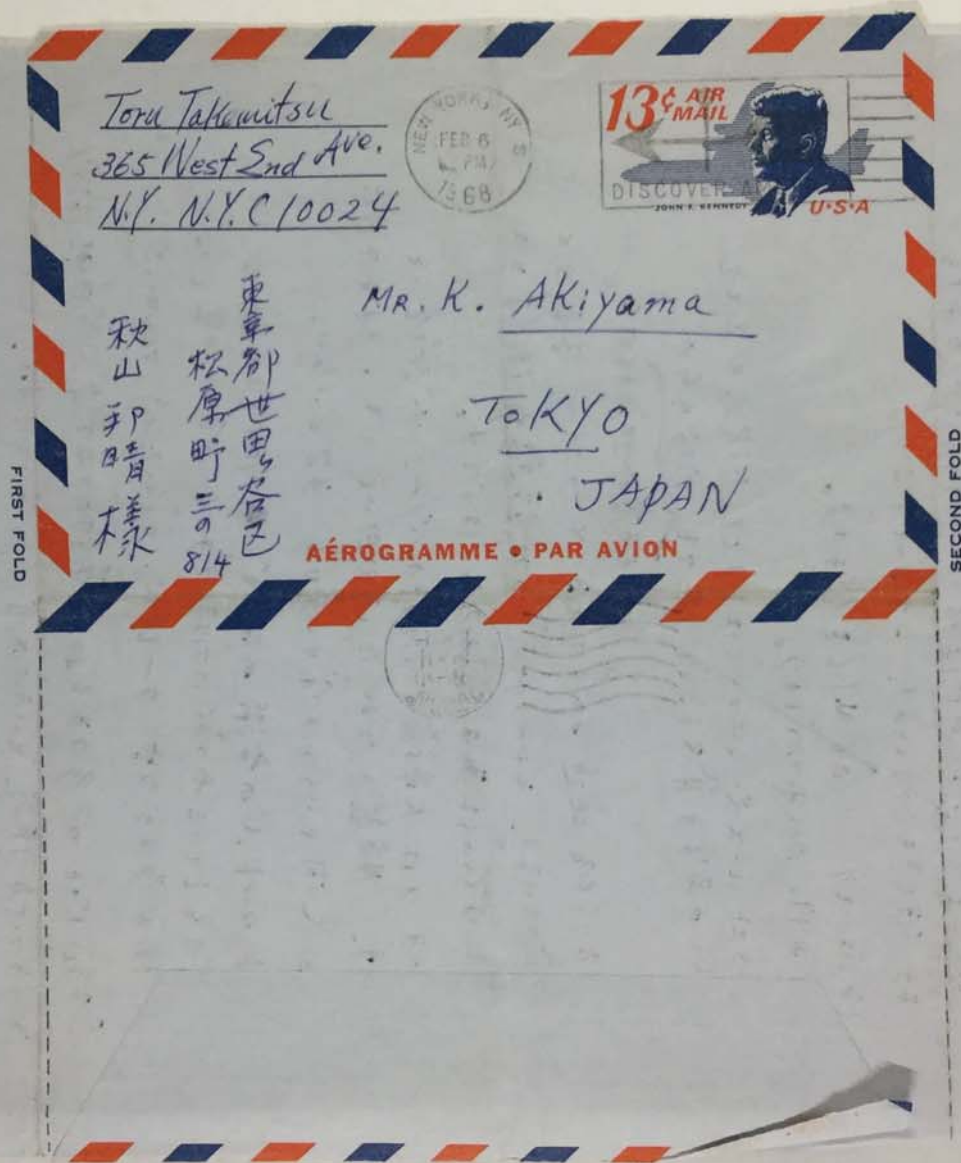 Toru Takemitsu
365 West End Ave.
N.Y. N.Y.C 10024
NEW YORK, NY
FEB 6
PM
1968
13¢ AIR
MAIL
DISCOVER
JOHN F. KENNEDY
U·S·A
MR. K. AKiyama
ToKYO
JAPAN
東京都世田谷区
松原町三の
814
秋山邦晴様
AÉROGRAMME • PAR AVION
FIRST FOLD
SECOND FOLD